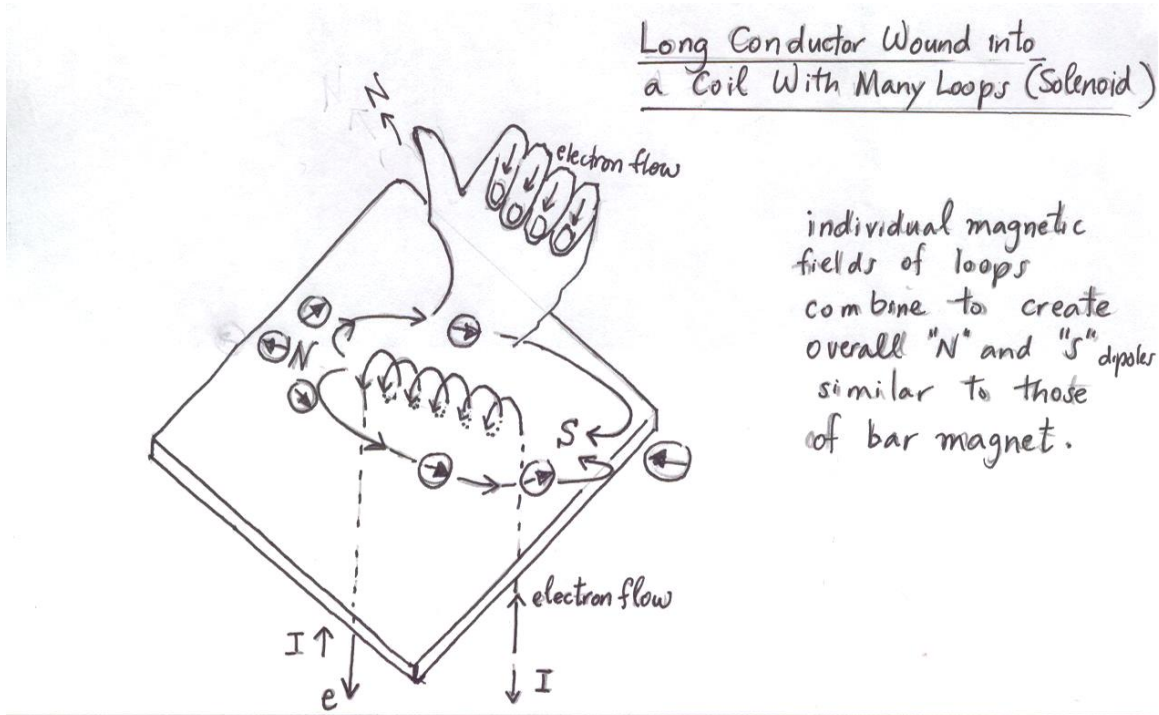 Long Conductor Wound into
a Coil With Many Loops (Solenoid)
N
electron flow
individual magnetic
fields of loops
combine to create
overall "N" and "S" dipoles
similar to those
of bar magnet.
N
S
electron flow
I
e
I